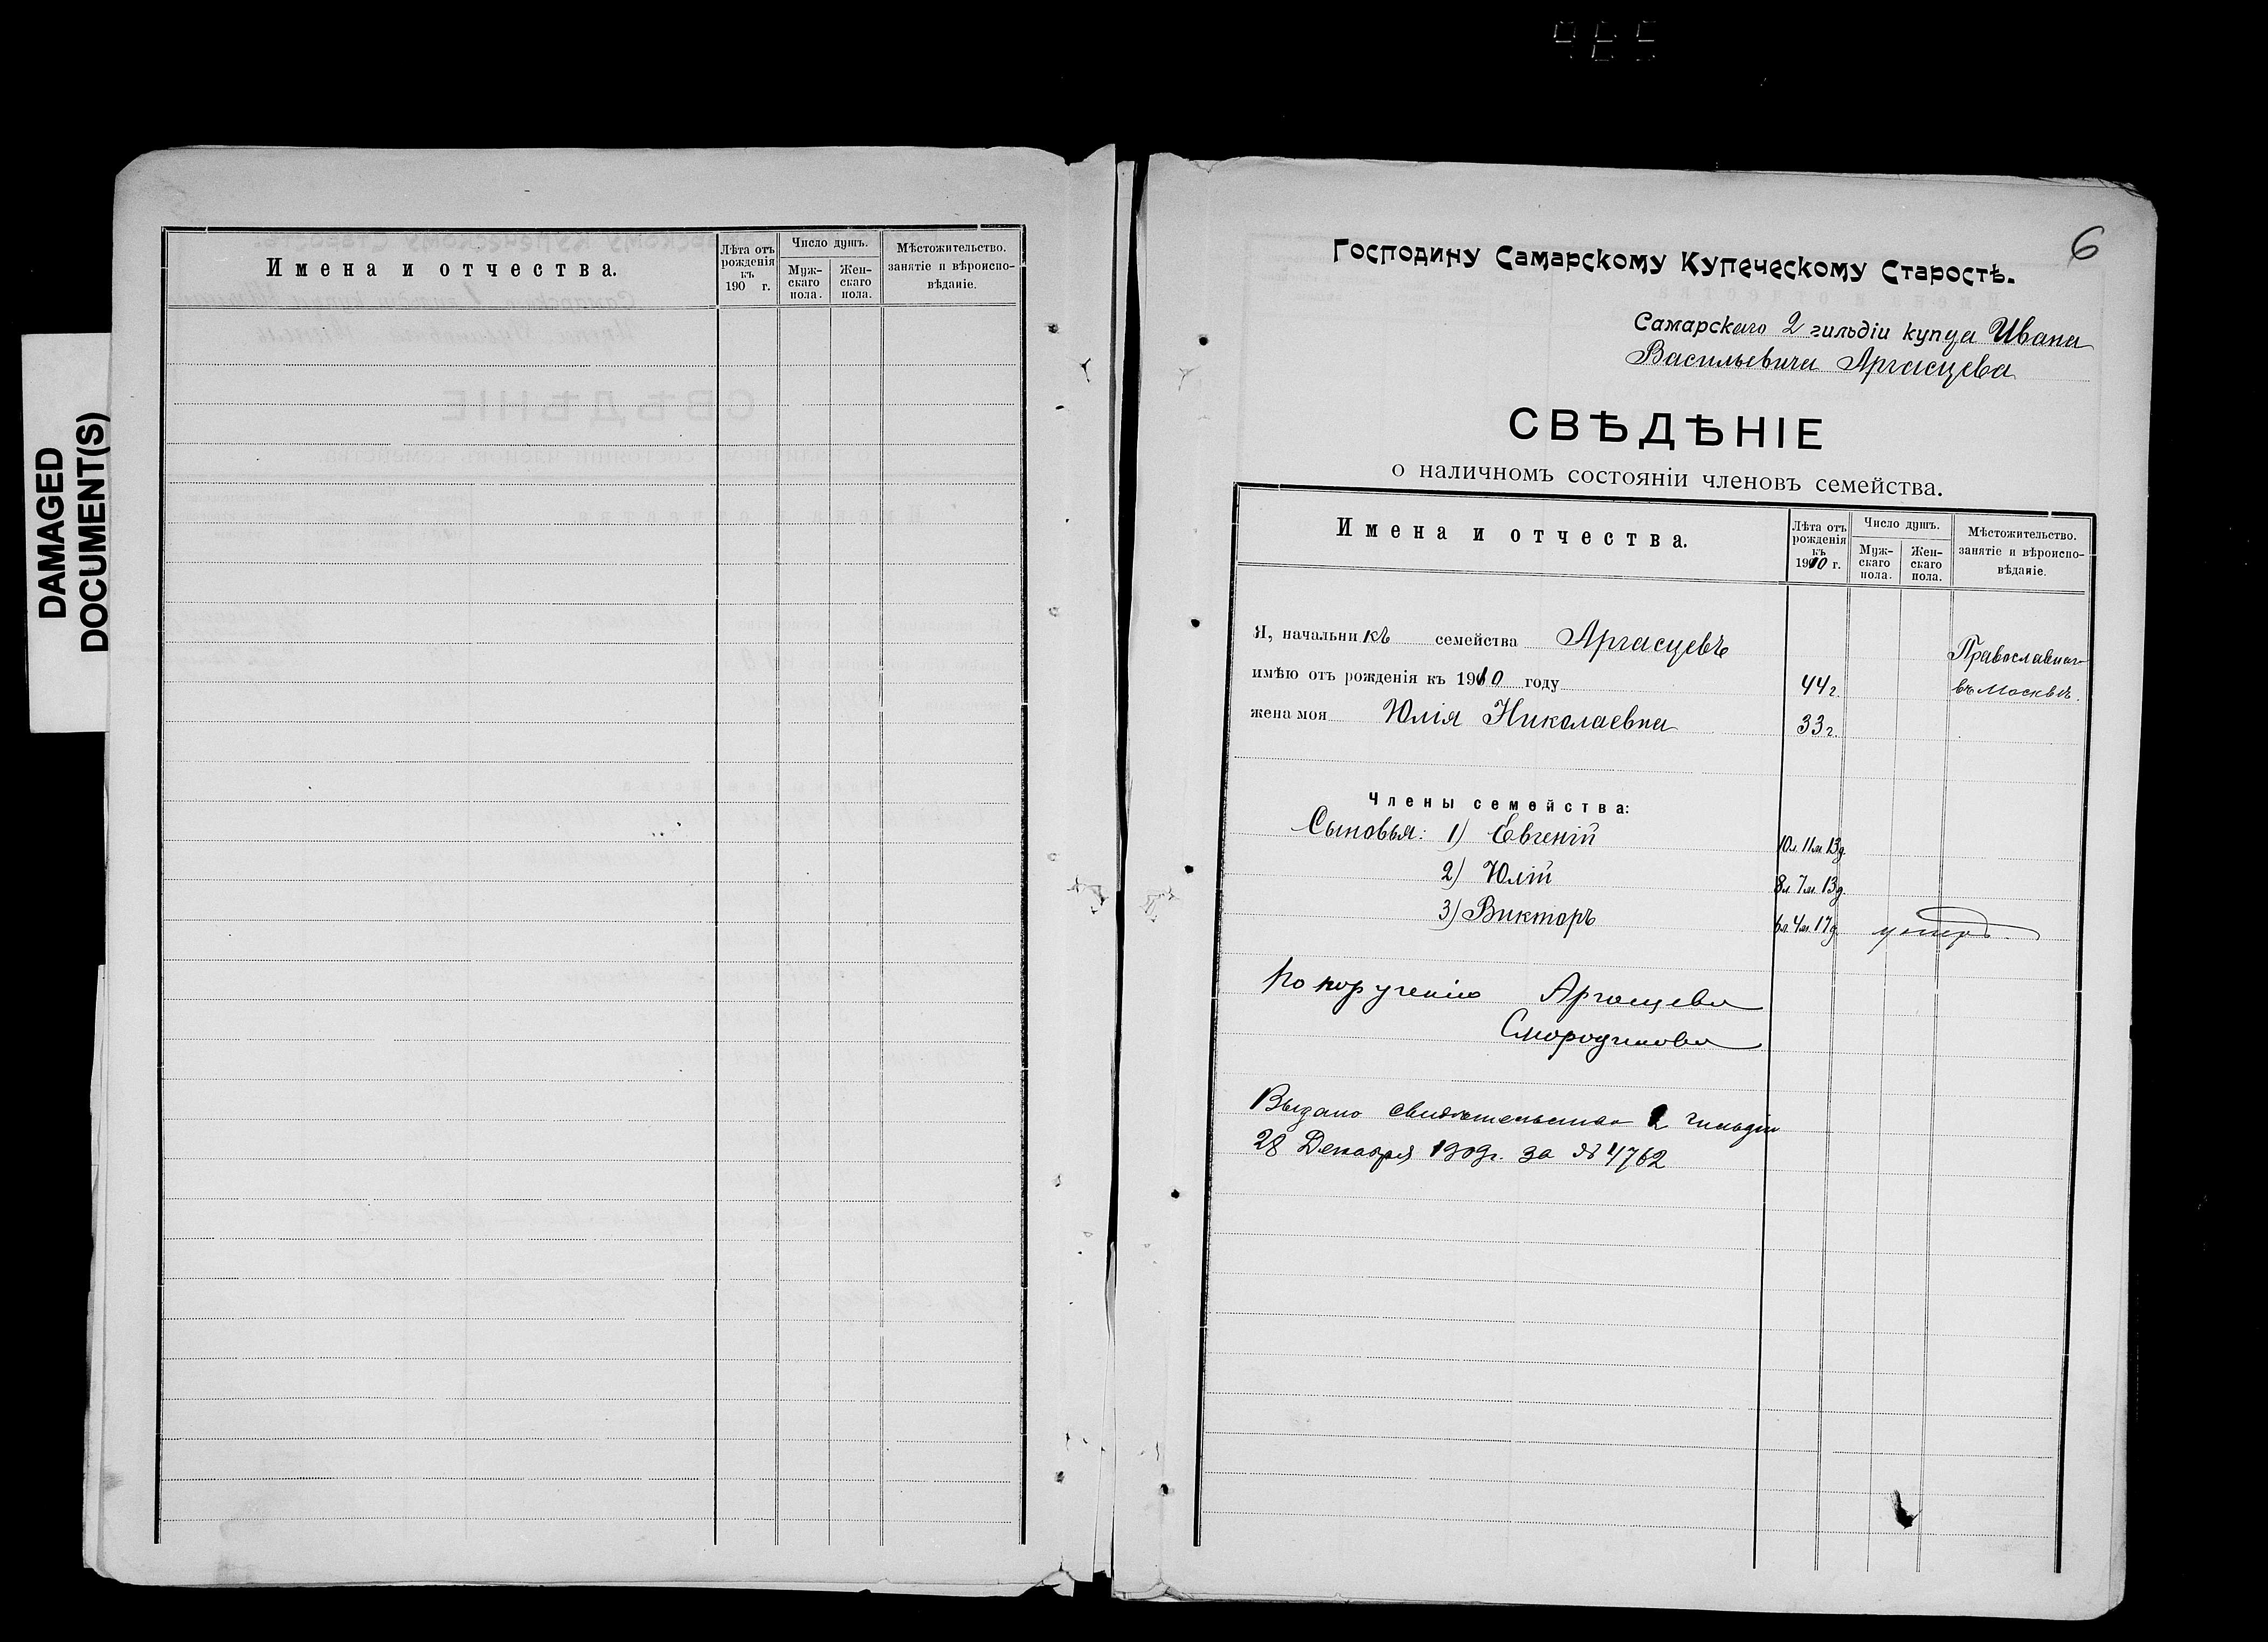 DAMAGED
DOCUMENT(S)
Имена и отчества.
Лѣта отъ рожденія къ 190 г.
Число душъ.
Муж-скаго пола.
Жен-скаго пола.
Мѣстожительство. занятіе и вѣроиспо-вѣданіе.
6
Господину Самарскому Купеческому Старостѣ.
Самарскаго 2 гильдіи купца Ивана
Васильевича Аргасцева
СВѢДѢНІЕ
о наличномъ состояніи членовъ семейства.
Имена и отчества.
Лѣта отъ рожденія къ 1910 г.
Число душъ.
Муж-скаго пола.
Жен-скаго пола.
Мѣстожительство. занятіе и вѣроиспо-вѣданіе.
Я, начальникъ семейства Аргасцевъ
Православнаго
имѣю отъ рожденія къ 1910 году 44 г. въ Москвѣ.
жена моя Юлія Николаевна 33 г.
Члены семейства:
Сыновья: 1) Евгеній 10л. 11м. 13д.
2) Юлій 8л. 7м. 13д.
3) Викторъ 6л. 4м. 17д. умеръ.
По порученію Аргасцева
Смородинова
Выдано свидѣтельство 2 гильдіи
28 Декабря 1909г. за № 4762